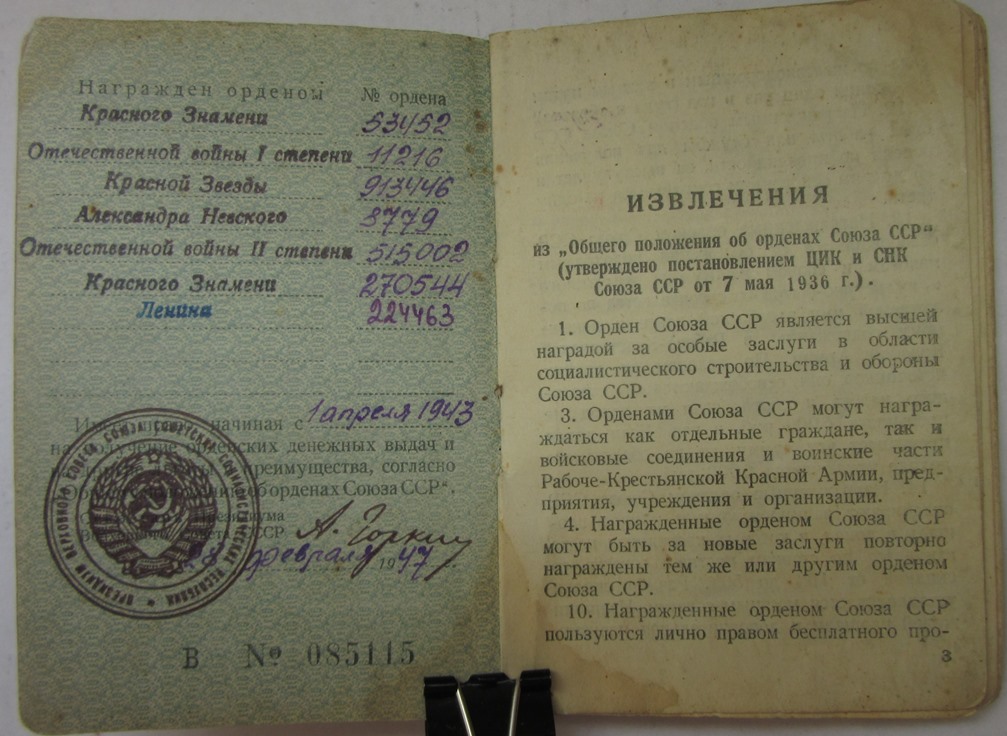 Награжден орденом № ордена
Красного Знамени 53452
Отечественной войны I степени 11216
Красной Звезды 913446
Александра Невского 3779
Отечественной войны II степени 515002
Красного Знамени 270544
Ленина 224463
Име начиная с 1 апреля 1943
на получение орденских денежных выдач и
преимущества, согласно
об орденах Союза ССР“.
А. Горкин
28 февраля 1947 г.
ПРЕЗИДИУМ ВЕРХОВНОГО СОВЕТА СОЮЗА СОВЕТСКИХ СОЦИАЛИСТИЧЕСКИХ РЕСПУБЛИК
В № 085115
ИЗВЛЕЧЕНИЯ
из „Общего положения об орденах Союза ССР“
(утверждено постановлением ЦИК и СНК
Союза ССР от 7 мая 1936 г.).
1. Орден Союза ССР является высшей
наградой за особые заслуги в области
социалистического строительства и обороны
Союза ССР.
3. Орденами Союза ССР могут награ-
ждаться как отдельные граждане, так и
войсковые соединения и воинские части
Рабоче-Крестьянской Красной Армии, пред-
приятия, учреждения и организации.
4. Награжденные орденом Союза ССР
могут быть за новые заслуги повторно
награждены тем же или другим орденом
Союза ССР.
10. Награжденные орденом Союза ССР
пользуются лично правом бесплатного про-
3